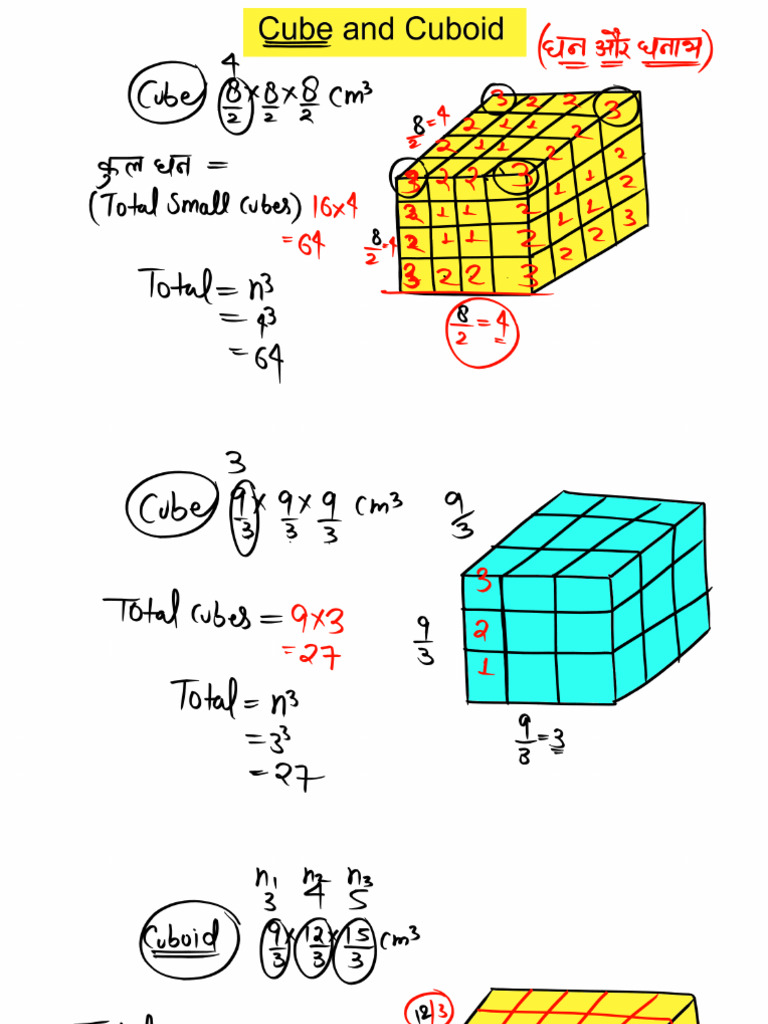 Cube and Cuboid
(घन और घनाभ)
4
Cube 8/2 × 8/2 × 8/2 cm³
कुल घन =
(Total Small cubes) 16×4
= 64
Total = n³
= 4³
= 64
8/2 = 4
3 2 2 3
2 1 1 2
2 1 1 2
3 2 2 3
8/2 = 4
3 2 2 3
2 1 1 2
2 1 1 2
3 2 2 3
1 1 2
1 1 2
2 2 3
8/2 = 4
3
Cube 9/3 × 9/3 × 9/3 cm³
9/3
Total cubes = 9×3
= 27
3
2
1
9/3
Total = n³
= 3³
= 27
9/3 = 3
n₁ n₂ n₃
3 4 5
Cuboid 9/3 × 12/3 × 15/3 cm³
12/3